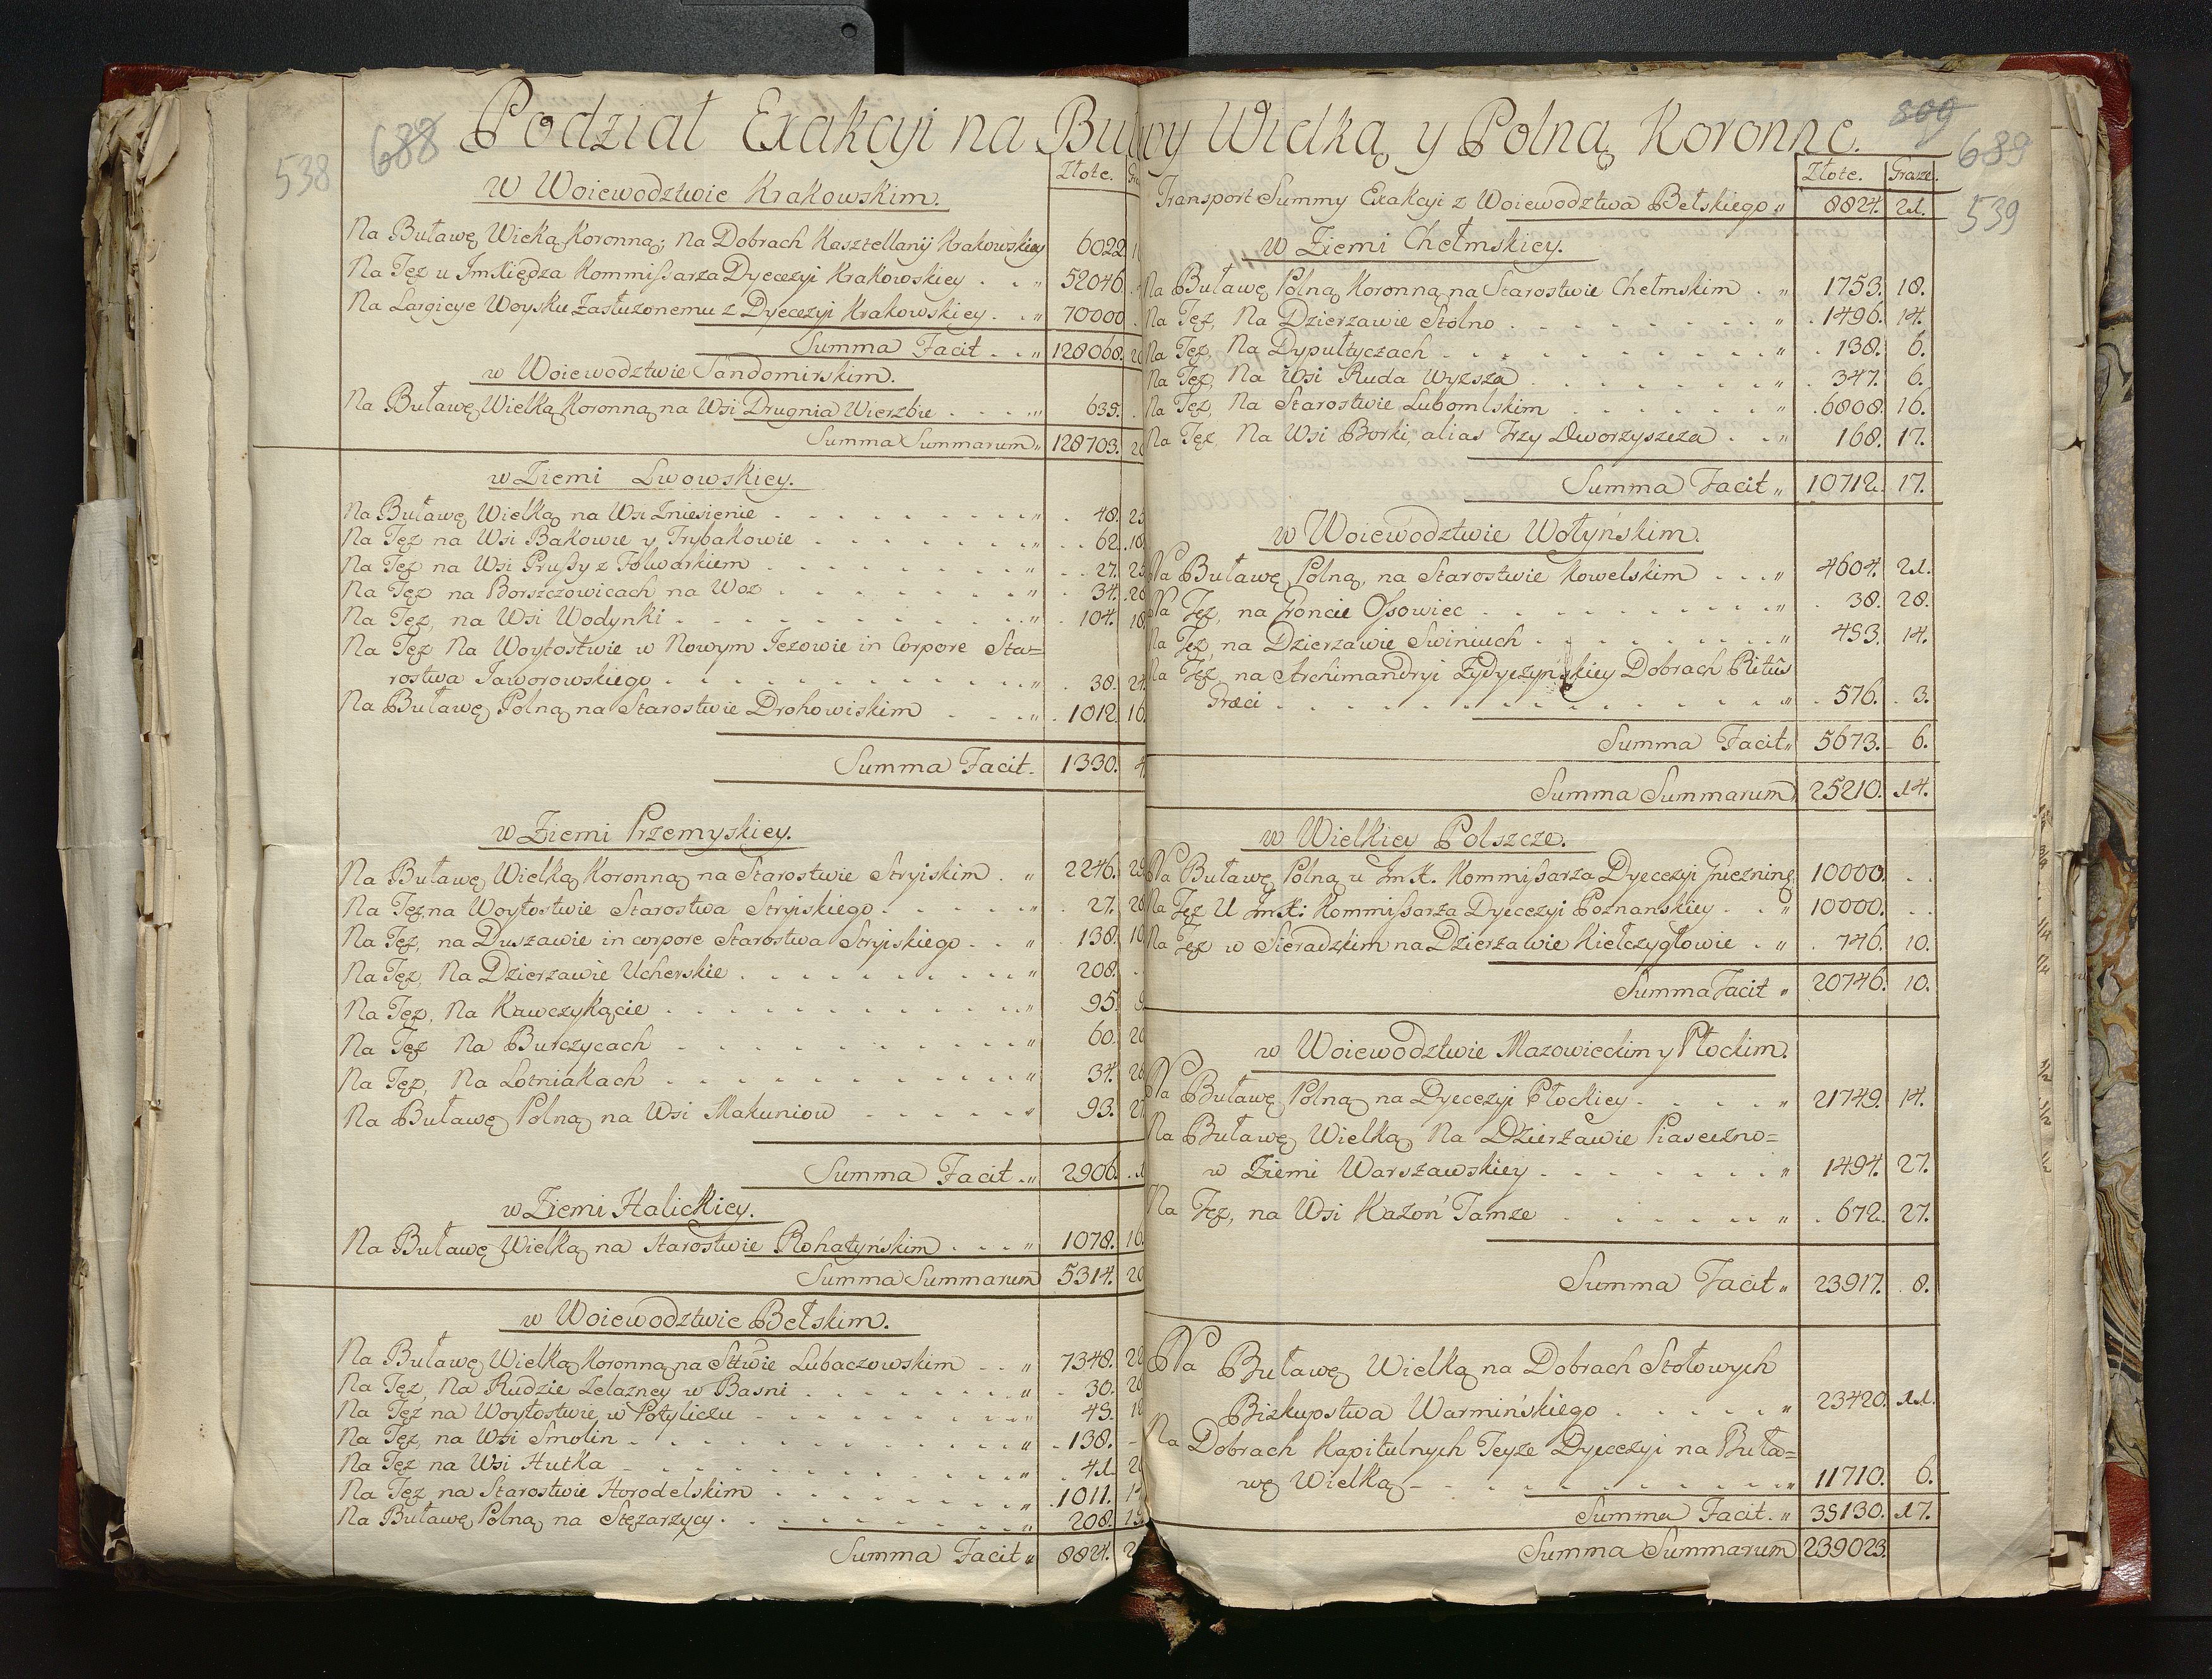 Podział Exakcyi na Buławy Wielką y Polną Koronne.
538
688
Złote.
w Woiewodztwie Krakowskim.
Na Buławę Wieką Koronną; Na Dobrach Kasztellanij Krakowskiey 6022.
Na Tęż u Jmksiędza Kommissarza Dyecezyi Krakowskiey 52046.
Na Largicye Woysku Zasłużonemu z Dyecezyi Krakowskiey 70000
Summa Facit 128068.
w Woiewodztwie Sandomirskim.
Na Buławę Wielką Koronną na Wsi Drugnia Wierzbie 635.
Summa Summarum 128703.
w Ziemi Lwowskiey.
Na Buławę Wielką na Wsi Zniesienie 48.
Na Tęż na Wsi Bakowie y Frybakowie 62. 18
Na Tęż na Wsi Prussy z Folwarkiem 27.
Na Tęż na Borszczowicach na Woz 34.
Na Tęż, na Wsi Wodynki 104. 18
Na Tęż Na Woytostwie w Nowym Jezowie in Corpore Sta=
rostwa Jaworowskiego 38.
Na Buławę Polną na Starostwie Drohowiskim 1012. 16
Summa Facit. 1330.
w Ziemi Przemyskiey.
Na Buławę Wielką Koronną na Starostwie Stryiskim 2246.
Na Tęż na Woytostwie Starostwa Stryiskiego 27.
Na Tęż, na Duszawie in corpore Starostwa Stryiskiego 138.
Na Tęż, Na Dzierzawie Ucherskie 208.
Na Tęż, Na Kawczykącie 95.
Na Tęż Na Burczycach 60.
Na Tęż, Na Lotniakach 34.
Na Buławę Polną na Wsi Makuniow 93.
Summa Facit 2906.
w Ziemi Halickiey.
Na Buławę Wielką na Starostwie Rohatyńskim 1078. 16.
Summa Summarum 5314.
w Woiewodztwie Bełskim.
Na Buławę Wielką Koronną na Sttwie Lubaczowskim 7348.
Na Tęż, Na Rudzie Zelazney w Basni 30.
Na Tęż na Woytostwie w Potyliczu 45.
Na Tęż, na Wsi Smolin 138.
Na Tęż na Wsi Hutka 41.
Na Tęż na Starostwie Horodelskim 1011.
Na Buławę Polną na Stęzarzycy 208.
Summa Facit 8824.
809
689
539
Złote. Grosze.
Transport Summy Exakcyi z Woiewodztwa Bełskiego 8824. 21.
w Ziemi Chełmskiey.
Na Buławę Polną Koronną na Starostwie Chełmskim 1753. 18.
Na Tęż, Na Dzierzawie Stolno 1496. 14.
Na Tęż, Na Dypułtyczach 138. 6.
Na Tęż, Na Wsi Ruda Wyzsza 347. 6.
Na Tęż, Na Starostwie Lubomlskim 6808. 16.
Na Tęż, Na Wsi Borki, alias Trzy Dworzyszcza 168. 17.
Summa Facit 10712. 17.
w Woiewodztwie Wołyńskim.
Na Buławę Polną, na Starostwie Kowelskim 4604. 21.
Na Tęż, na Groncie Ossowiec 38. 28.
Na Tęż, na Dzierzawie Swiniuch 453. 14.
Na Tęż, na Archimandryi Zydyczyńskiey Dobrach Ritûs
Græci 576. 3.
Summa Facit 5673. 6.
Summa Summarum 25210. 14.
w Wielkiey Polszcze.
Na Buławę Polną u Jm X. Kommissarza Dyecezyi Gniezniń: 10000.
Na Tęż U Jm X: Kommissarza Dyecezyi Poznanskiey 10000.
Na Tęż w Sieradzkim na Dzierzawie Kiełczygłowie 746. 10.
Summa Facit 20746. 10.
w Woiewodztwie Mazowieckim y Płockim.
Na Buławę Polną na Dyecezyi Płockiey 21749. 14.
Na Buławę Wielką Na Dzierżawie Piaseczno=
w Ziemi Warszawskiey 1494. 27.
Na Tęż, na Wsi Kazoń Tamze 672. 27.
Summa Facit 23917. 8.
Na Buławę Wielką na Dobrach Stołowych
Bizkupstwa Warmińskiego 23420. 11.
Na Dobrach Kapitulnych Teyze Dyecezyi na Buła=
wę Wielką 11710. 6.
Summa Facit 35130. 17.
Summa Summarum 239023.